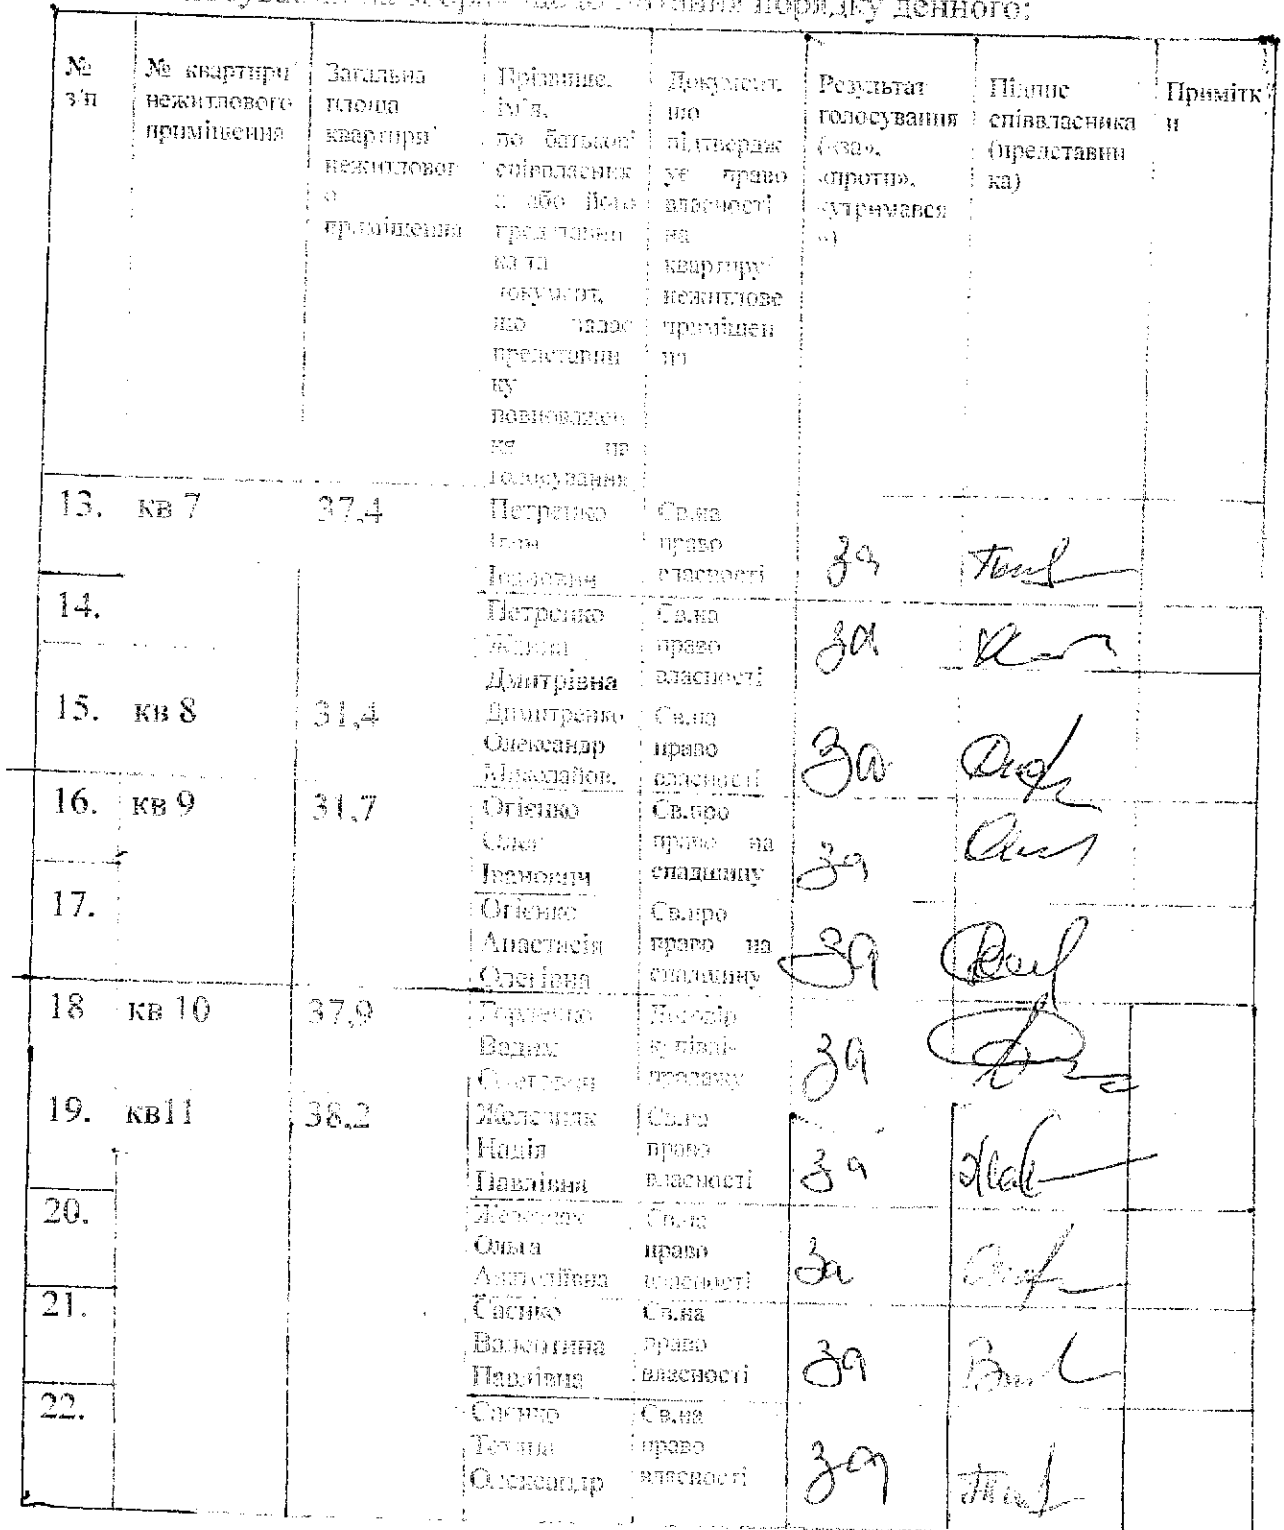 порядку денного:
№ з/п
№ квартири/ нежитлового приміщення
Загальна площа квартири/ нежитлового приміщення
Прізвище, ім'я, по батькові співвласника або його представника та документ, що надає представнику повноваження на голосування
Документ, що підтверджує право власності на квартиру/ нежитлове приміщення
Результат голосування («за», «проти», «утримався»)
Підпис співвласника (представника)
Примітки
13. кв 7 37,4 Петренко Іван Іванович Св.на право власності за
14. Петренко Дмитрівна Св.на право власності за
15. кв 8 31,4 Димитренко Олександр Миколайов. Св.на право власності за
16. кв 9 31,7 Огієнко Олег Іванович Св.про право на спадщину за
17. Огієнко Анастасія Олегівна Св.про право на спадщину за
18 кв 10 37,9 Вадим Олегович Договір купівлі-продажу за
19. кв11 38,2 Железняк Надія Павлівна Св.на право власності за
20. Железняк Ольга Анатоліївна Св.на право власності за
21. Саєнко Валентина Павлівна Св.на право власності за
22. Саєнко Тетяна Олександр Св.на право власності за